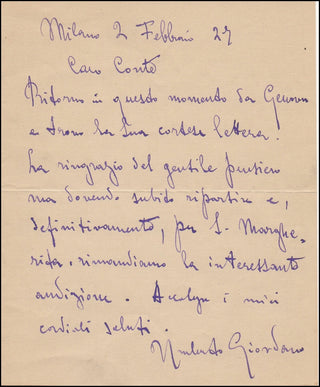 Milano 2 Febbraio 27
Caro Conte
Ritorno in questo momento da Genova
e trovo la Sua cortese lettera.
La ringrazio del gentile pensiero
ma dovendo subito ripartire e,
definitivamente, per S. Marghe-
rita, rimandiamo la interessante
audizione. Accolga i miei
cordiali saluti.
Umberto Giordano